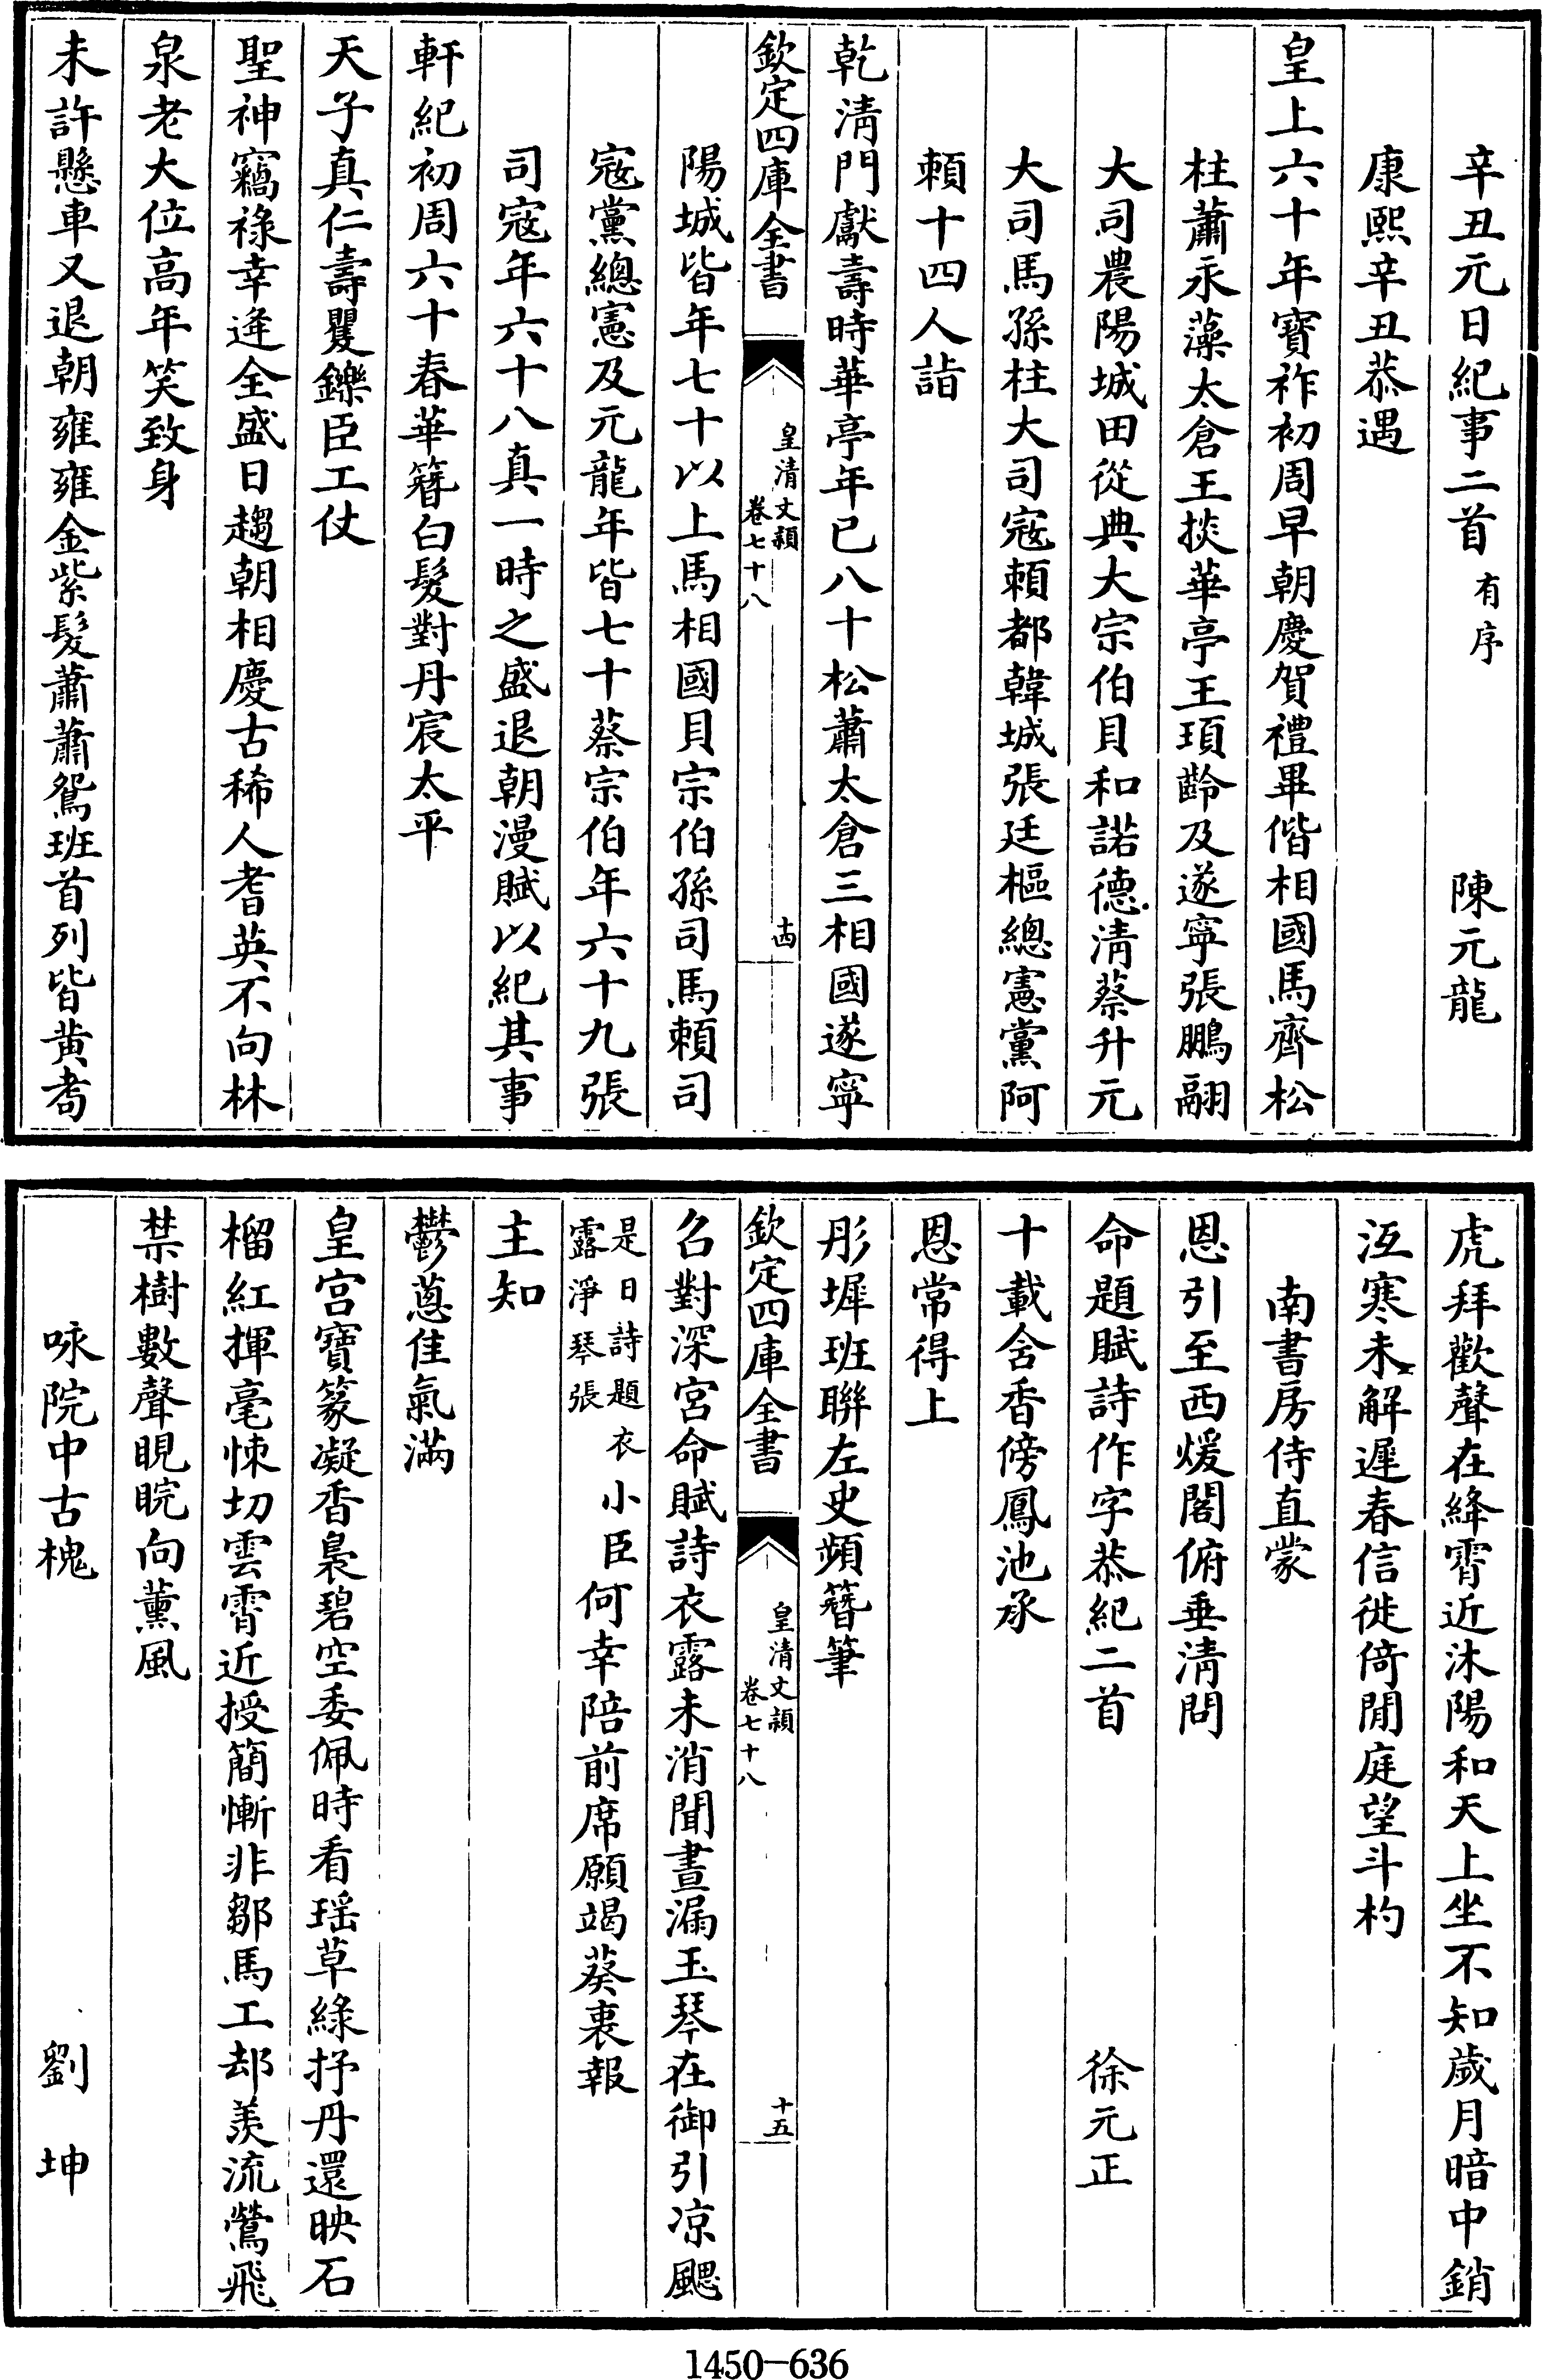 辛丑元日紀事二首有序 陳元龍
康熙辛丑恭遇
皇上六十年寳祚初周早朝慶賀禮畢偕相國馬齊松
柱蕭永藻太倉王掞華亭王頊齡及遂寧張鵬翮
大司農陽城田從典大宗伯貝和諾德清蔡升元
大司馬孫柱大司寇賴都韓城張廷樞總憲黨阿
賴十四人詣
乾清門獻壽時華亭年已八十松蕭太倉三相國遂寧
欽定四庫全書 皇清文頴 卷七十八 十四
陽城皆年七十以上馬相國貝宗伯孫司馬賴司
寇黨總憲及元龍年皆七十蔡宗伯年六十九張
司寇年六十八真一時之盛退朝漫賦以紀其事
軒紀初周六十春華簪白髮對丹宸太平
天子真仁壽矍鑠臣工仗
聖神竊祿幸逢全盛日趨朝相慶古稀人耆英不向林
泉老大位高年笑致身
未許懸車又退朝雍雍金紫髮蕭蕭鴛班首列皆黄耇
虎拜歡聲在絳霄近沐陽和天上坐不知歲月暗中銷
沍寒未解遲春信徙倚閒庭望斗杓
南書房侍直蒙
恩引至西煖閣俯垂清問
命題賦詩作字恭紀二首 徐元正
十載含香傍鳳池承
恩常得上
彤墀班聯左史頻簪筆
欽定四庫全書 皇清文頴 卷七十八 十五
召對深宮命賦詩衣露未消聞晝漏玉琴在御引凉颸
是日詩題衣露淨琴張小臣何幸陪前席願竭葵衷報
主知
鬱葱佳氣滿
皇宮寳篆凝香裊碧空委佩時看瑶草綠抒丹還映石
榴紅揮毫悚切雲霄近授簡慚非鄒馬工却羨流鶯飛
禁樹數聲睍睆向薰風
咏院中古槐 劉坤
1450—636